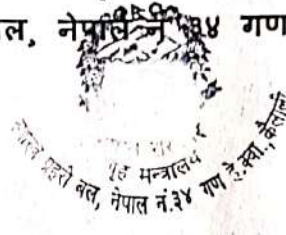 ल, नेपाल नं ३४ गण
गृह मन्त्रालय
प्रहरी बल, नेपाल नं.३४ गण हे.क्वा., कैलाली